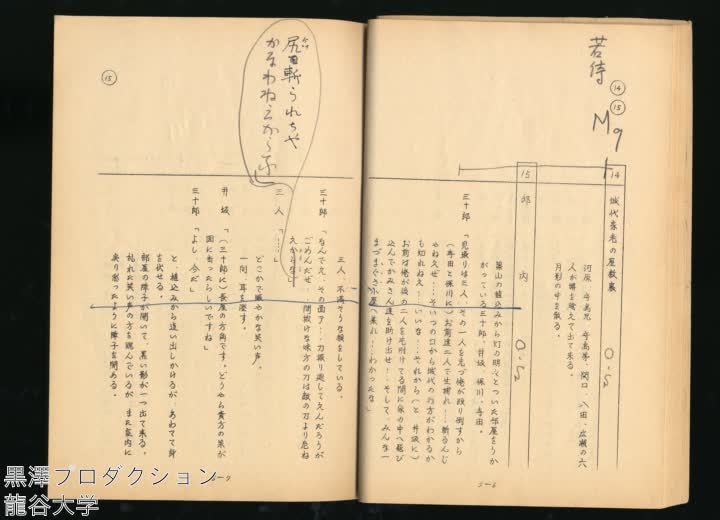 若侍
⑭
⑮
M9
14
城代家老の屋敷裏
O.S
河原、寺島兄、寺島弟、関口、八田、広瀬の六
人が塀を越えて出て来る。
月影の中を散る。
15
邸　内
O.S
築山の植込みから灯の明々とついた部屋をうか
がっている三十郎、井坂、保川、寺田。
三十郎「見張りは三人…その一人を先づ俺が殴り倒すから
（寺田と保川に）お前達二人で生捕れ…斬るんじ
ゃねえぜ…そいつの口から城代の行方がわかるか
も知れねえ…いいな…それから（と　井坂に）
お前は俺が後の二人を片附けてる間に家の中へ飛び
込んでかみさん達を助け出せ…そして、みんな一
まづまぐさ小屋へ集れ…わかったな」
5-6
三人、不満そうな顔をしている。
三十郎「なんでえ、その面ァ…刀振り廻してえんだろうが
ごめんだぜ…間抜けな味方の刀は敵の刀より危ね
えからな」
三　人「…」
尻
斬られちゃ
かなわねえから
どこかで賑やかな笑い声。
一同、耳を澄す。
井　坂「（三十郎に）長屋の方角です。どうやら貴方の策が
図に当ったらしいですね」
三十郎「よし、今だ」
と、植込みから這い出しかけるが、あわてて身
を伏せる。
部屋の障子が開いて、黒い影が一つ出て来る。
乱れた笑い声の方を睨んでいるが、また家内に
戻り怒ったように障子を閉める。
⑮
5-7
黒澤プロダクション
龍谷大学